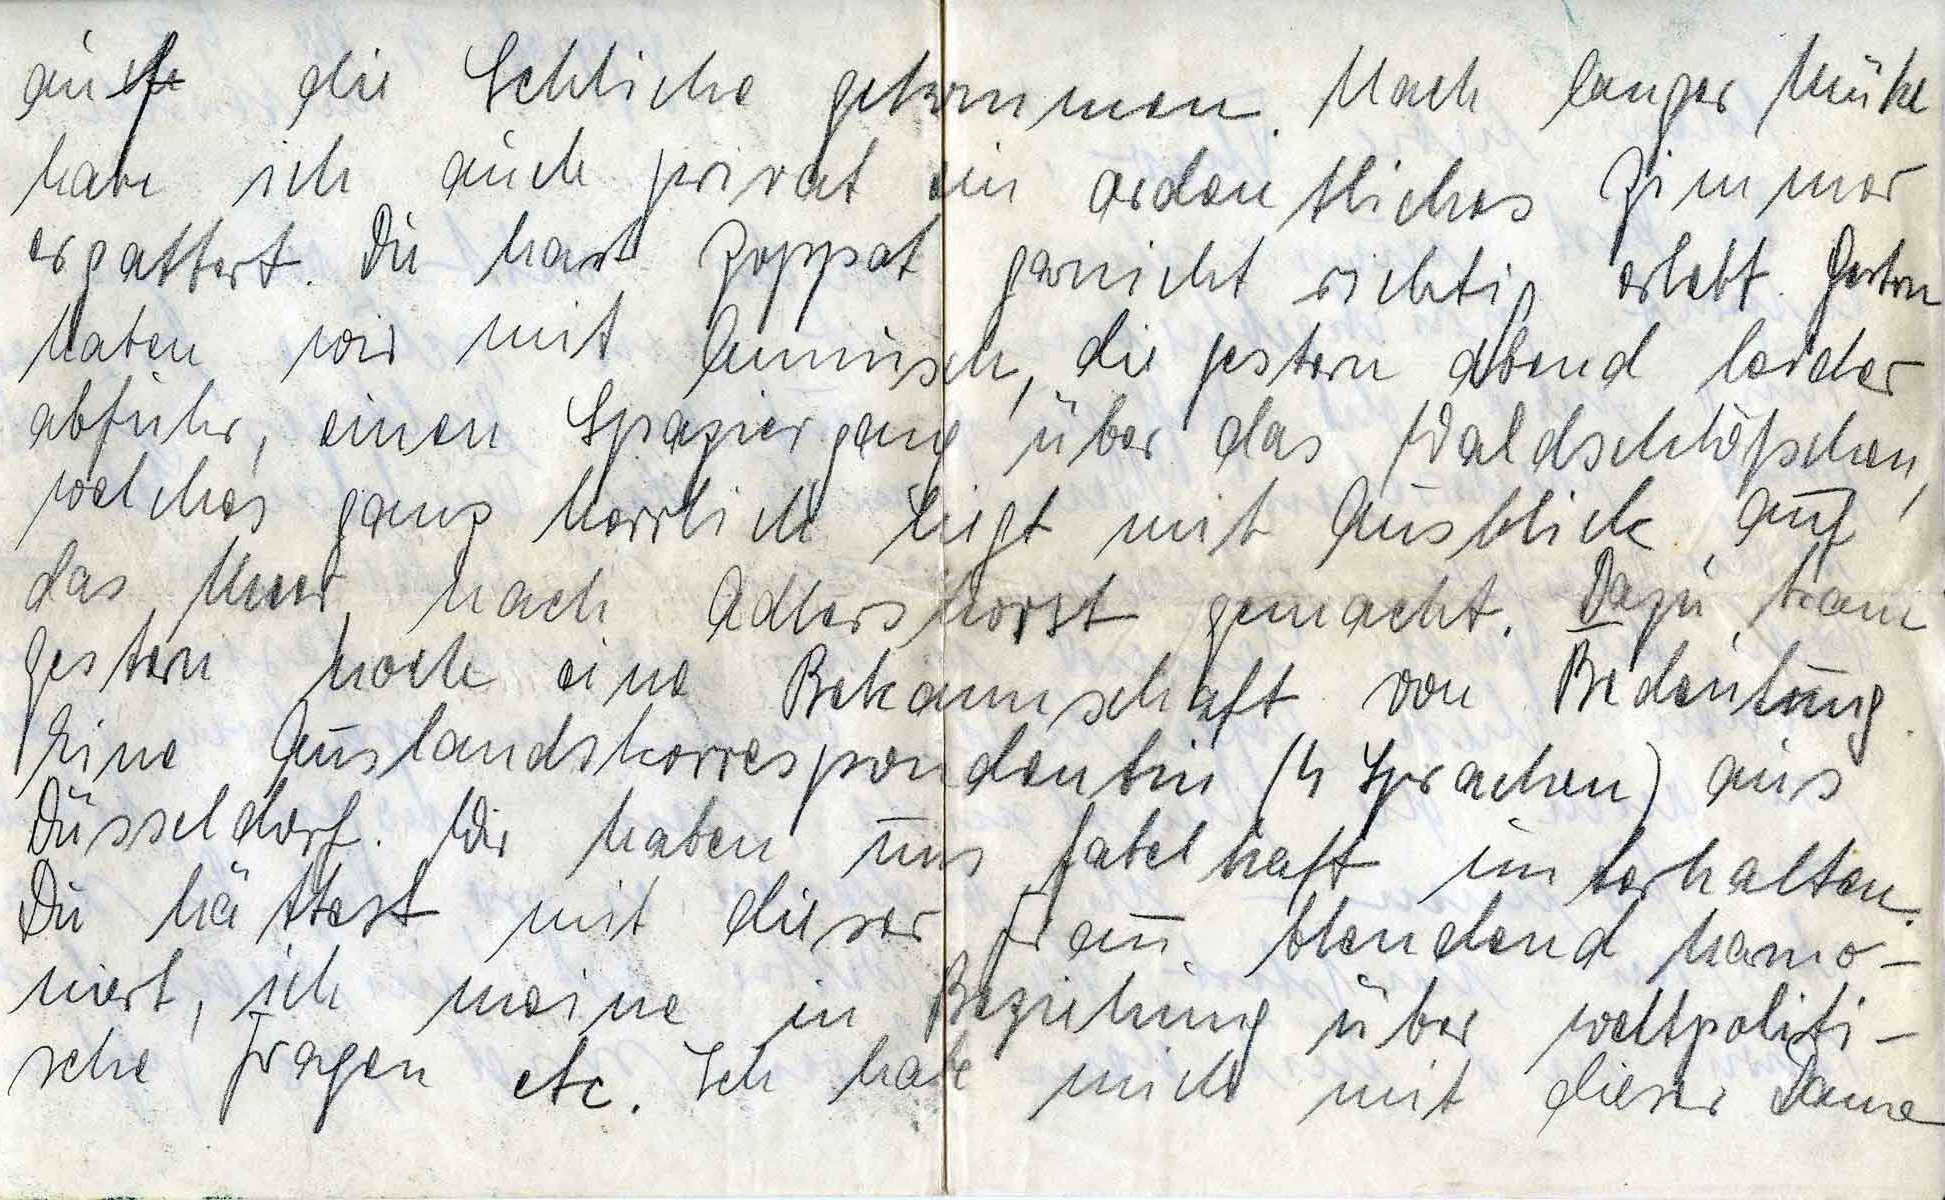 auf die Schliche gekommen. Nach langer Mühe
habe ich auch privat ein ordentliches Zimmer
ergattert. Du hast Zoppot garnicht richtig erlebt. Gestern
haben wir mit Annusch, die gestern abend leider
abfuhr, einen Spaziergang über das Waldschlößchen,
welches ganz herrlich liegt mit Ausblick auf
das Meer, nach Adlershorst gemacht. Dazu kam
gestern noch eine Bekannschaft von Bedeutung.
Eine Auslandskorrespondentin (4 Sprachen) aus
Düsseldorf. Wir haben uns fabelhaft unterhalten.
Du hättest mit dieser Frau blendend hamo-
niert, ich meine in Beziehung über weltpoliti-
sche Fragen etc. Ich habe mich mit dieser Dame